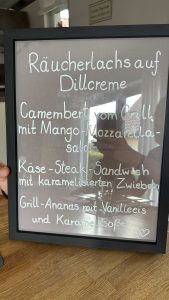 Räucherlachs auf
Dillcreme
Camembert vom Grill
mit Mango-Mozzarella-
salat
Käse-Steak-Sandwich
mit karamelisierten Zwiebeln
Grill-Ananas mit Vanilleeis
und Karamellsoße